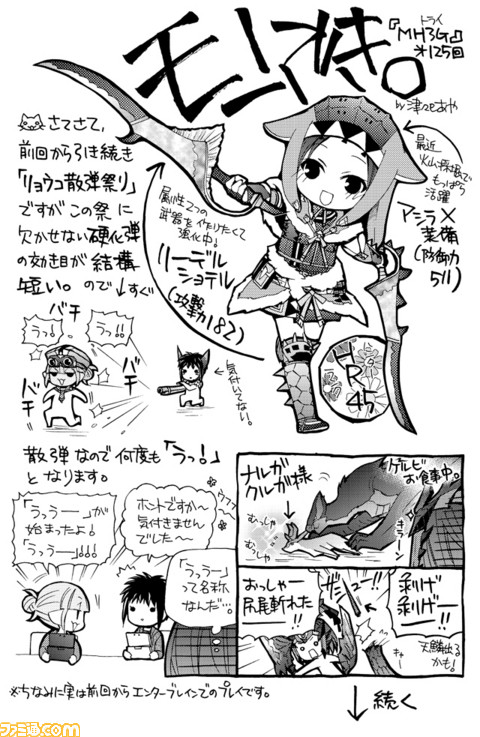 モンすき。
『MH3G』
トライ
*125回
by 津々セあや
さてさて、
前回から引き続き
「リョウコ散弾祭り」
ですが この祭に
欠かせない硬化弾
の効き目が 結構
短い。ので↓すぐ
属性2つの
武器を作りたくて
強化中!
リーデル
ショテル
(攻撃力182)
最近
火山採掘で
もっぱら
活躍
アシラ×
装備
(防御力
511)
HR
45
バチ
うっ!
うっ!!
バチ
バチ
気付いてない。
散弾なので何度も「うっ!」
となります。
「うっうー」が
始まったよ!
「うっうー」!!!
ホントですか〜
気付きません
でした〜
ウフフ
「うっうー」
って名称
なんだ…。
ナルガ
クルガ様
ゲルビ
お食事中。
むっしゃ
むっしゃ
キラーン
おっしゃー
尻尾斬れた
!!
ズシューー!!
剥げ
剥げー!!
天鱗出る
かも!
キャー
※ちなみに実は前回からエンターブレインでのプレイです。
↓続く
ファミ通.com